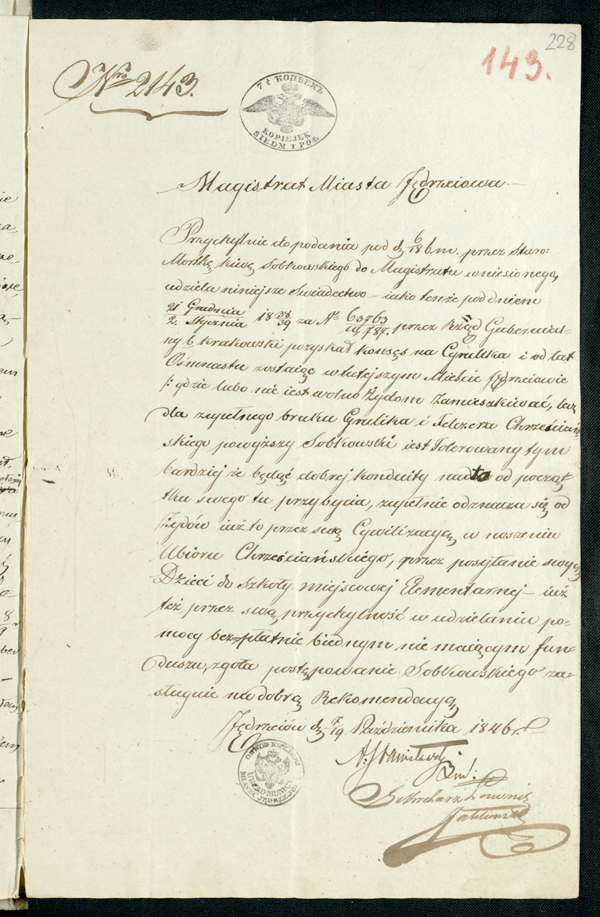 228
143.
Nro 2143.
7½ КОПѢЕКЪ
KOPIEJEK
SIEDM I PÓŁ
Magistrat Miasta Jędrzeiowa
Przychylnie do podania pod d. 6/18 b m. przez Staro:
Mortkę Sobkowskiego do Magistratu wniesionego,
udziela niniejsze Świadectwo – iako tenże pod dniem
21 Grudnia / 2. Stycznia 18 38/39 za N. 63763 / 14,787. przez Rząd Gubernial-
ny Krakowski pozyskał konsęs na Cyrulika i od lat
Ośmnastu zostaiąc w tutejszym Mieście Jędrzeiowie
/: gdzie lubo nie iest wolno Żydom zamieszkiwać, lecz
dla zupełnego braku Cyrulika i Felczera Chrześciań
skiego powyższy Sobkowski iest Tolerowany tym
bardziej że będąc dobrej konduity nadto od począt
tku swego tu przybycia, zupełnie odznacza się od
Żydów iuż to przez swą Cywilizacyą, w noszeniu
Ubioru Chrześciańskiego, przez posyłanie swoych
Dzieci do Szkoły miejscowej Elementarnej – iuż
też przez swą przychylność w udzielaniu po-
mocy bezpłatnie biednym nie maiącym fun-
duszu, zgoła postępowanie Sobkowskiego za-
sługuie na dobrą Rekomendacyą
Jędrzeiów d. 7/19 Października 1846 r.
Bur:
Sekretarz